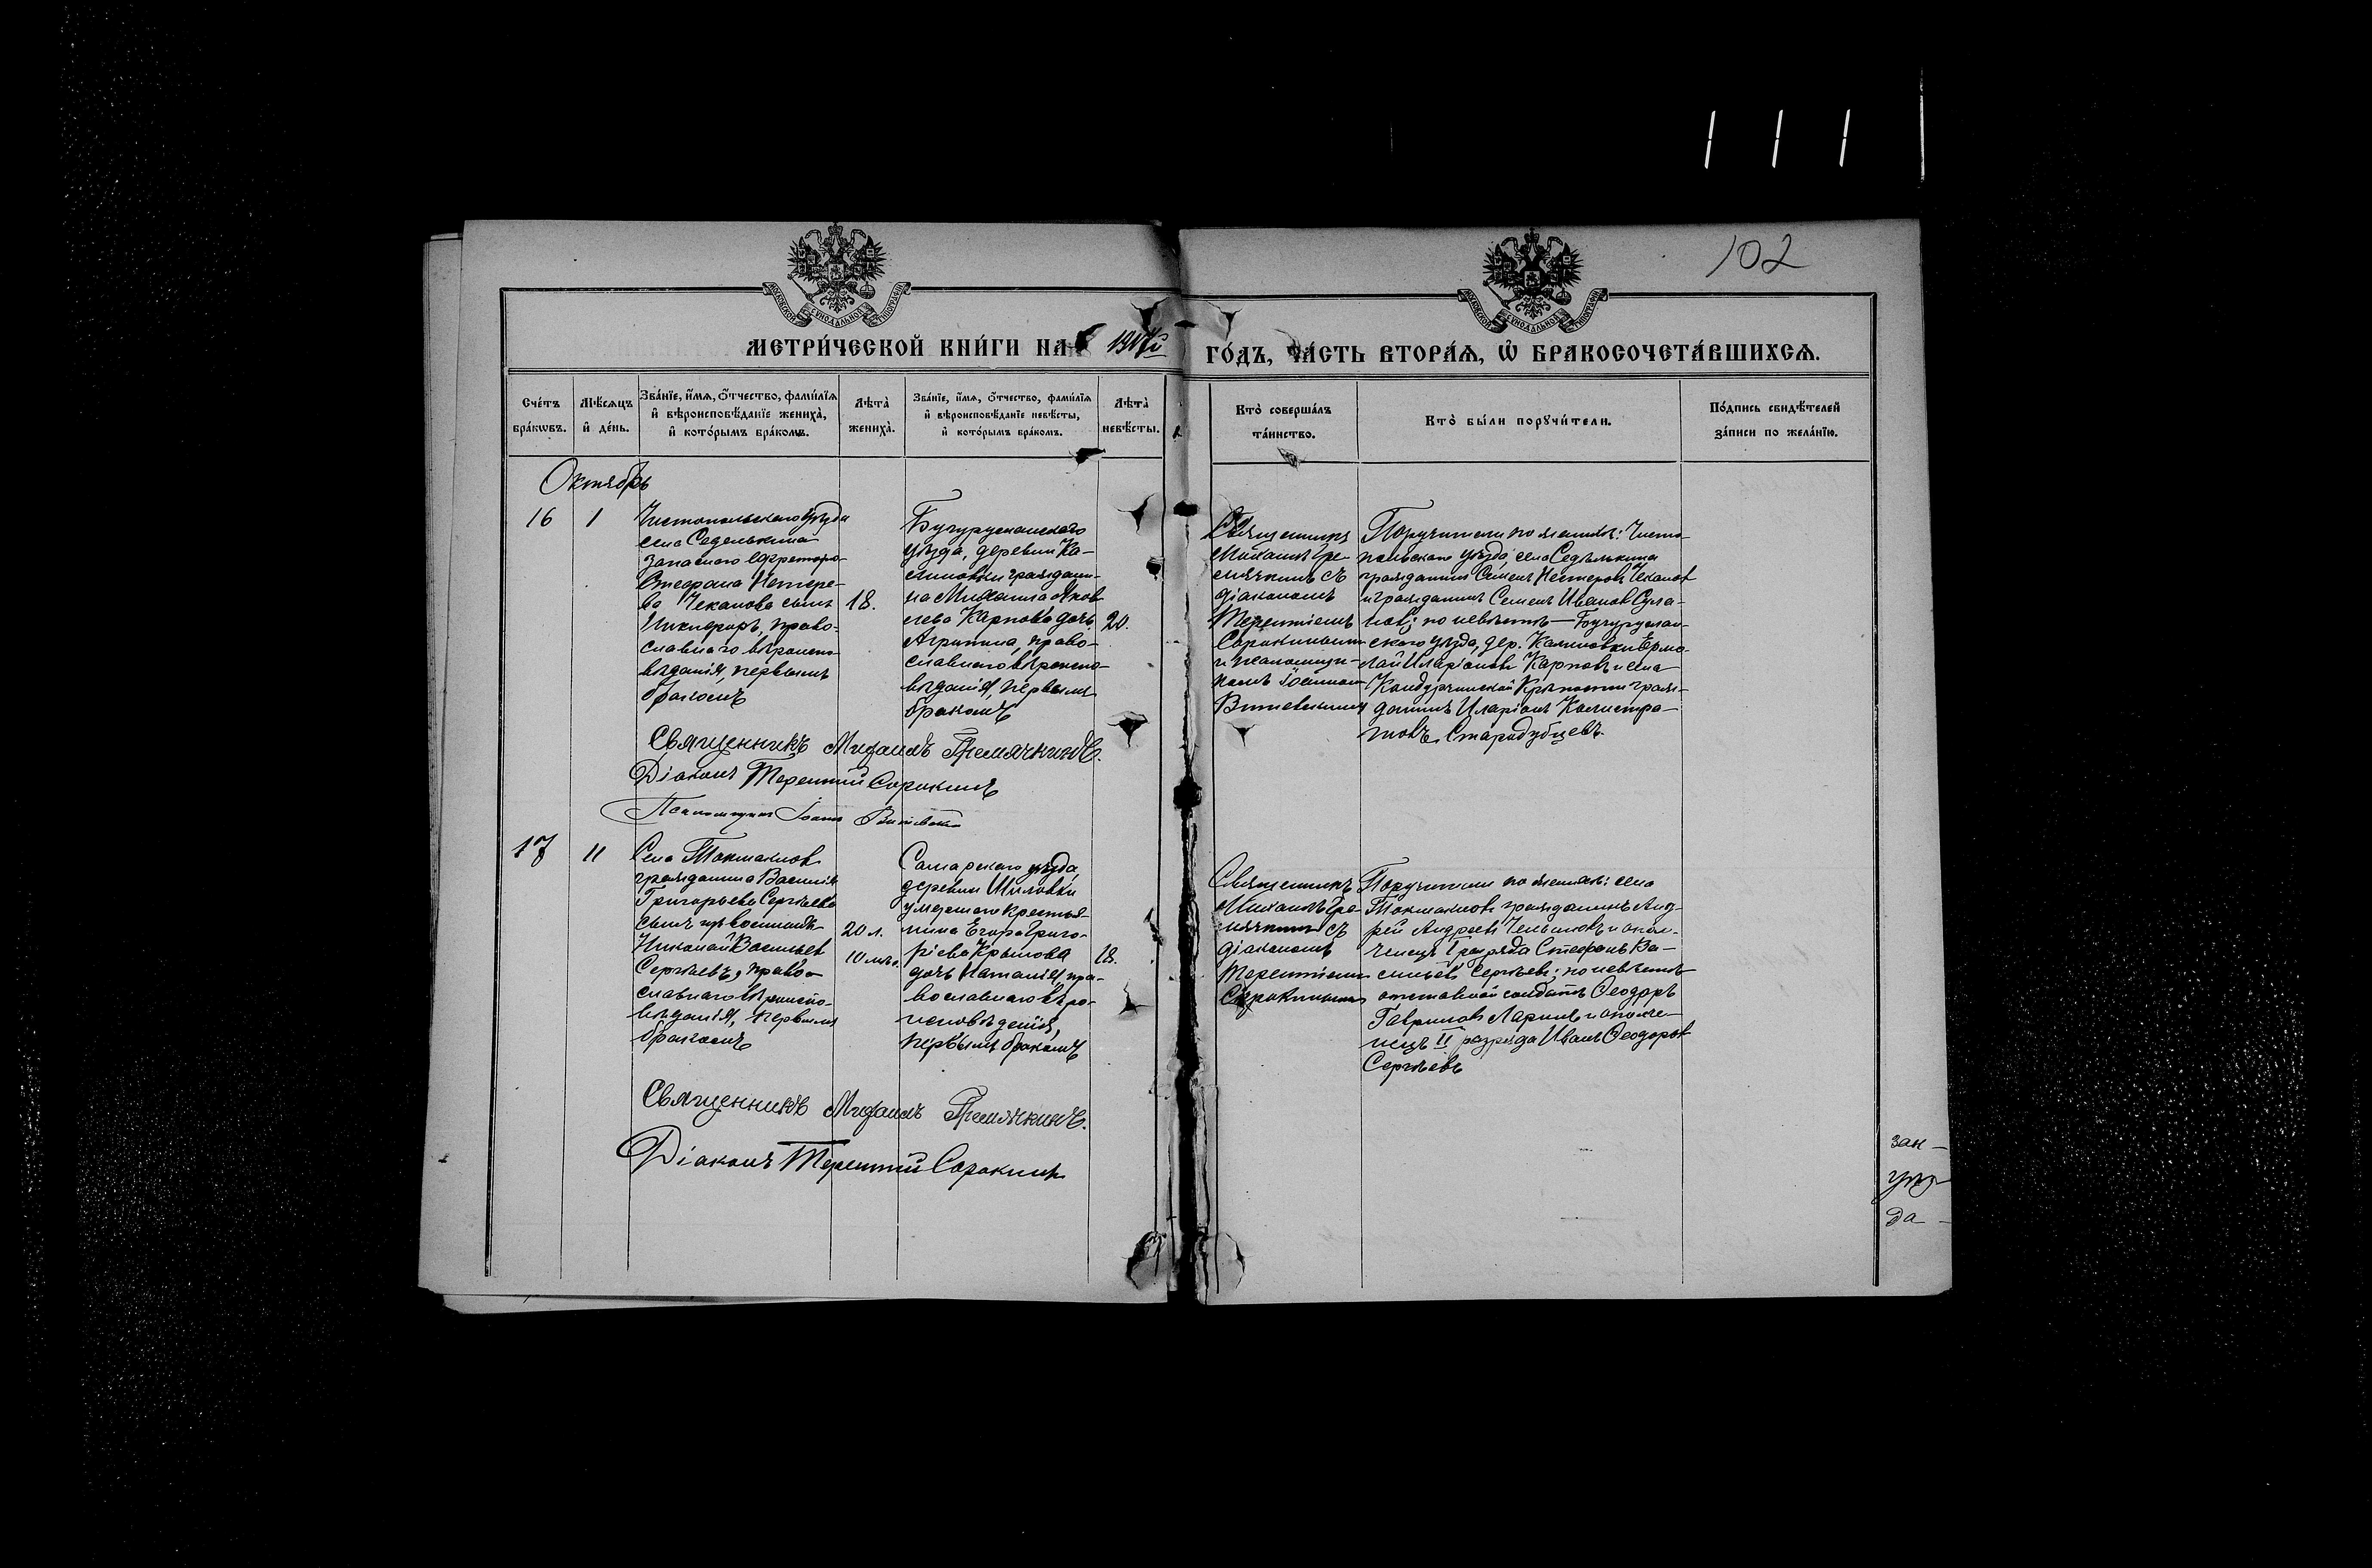 102
МОСКОВСКОЙ СѴНОДАЛЬНОЙ ТИПОГРАФІИ
МОСКОВСКОЙ СѴНОДАЛЬНОЙ ТИПОГРАФІИ
МЕТРИ́ЧЕСКОЙ КНИ́ГИ НА 1917й ГО́ДЪ, ЧА́СТЬ ВТОРА́Ѧ, Ѽ БРАКОСОЧЕТА́ВШИХСѦ.
Сче́тъ
бра́кѡвъ.
Мѣ́сѧцъ
и҆ де́нь.
Зва́нїе, и҆́мѧ, ѻ҆́тчество, фами́лїѧ
и҆ вѣроисповѣ́данїе жениха̀,
и҆ кото́рымъ бра́комъ.
Лѣ́та̀
жениха̀.
Зва́нїе, и҆́мѧ, ѻ҆́тчество, фами́лїѧ
и҆ вѣроисповѣ́данїе невѣ́сты,
и҆ кото́рымъ бра́комъ.
Лѣ́та̀
невѣ́сты.
Кто̀ соверша́лъ
та́инство.
Кто̀ бы́ли порꙋчи́тели.
По́дпись свидѣ́телей
за́писи по жела́нїю.
Октябрь
16
1
Чистопольскаго уѣзда
села Седелькина
запаснаго ефрейтора
Стефана Нестеро-
ва Чеканова сынъ
Никифоръ, право-
славнаго вѣроиспо-
вѣданія, первымъ
бракомъ
18.
Бугурусланскаго
уѣзда, деревни Ка-
линовки граждани-
на Михаила Яков
лева Карпова дочь
Агрипина, право-
славнаго вѣроиспо-
вѣданія, первымъ
бракомъ
20.
Священникъ
Михаилъ Гре-
мячкинъ съ
діакономъ
Терентіемъ
Сорокинымъ
и псаломщи-
комъ Іоанномъ
Поручители по женихѣ: Чисто-
польскаго уѣзда села Седѣлькина
гражданинъ Семенъ Нестеровъ Чеканов
и гражданинъ Семенъ Ивановъ
по невѣстѣ — Бугуруслан-
скаго уѣзда, дер. Калиновки Ермо-
лай Иларіоновъ Карповъ и села
Кондурчинской Крѣпости граж-
данинъ Иларіонъ Калистра-
товъ Стародубцевъ.
Священникъ Михаилъ Гремячкинъ.
Діаконъ Терентій Сорокинъ
Псаломщикъ Іоаннъ
17
11
Села Токмаклов
гражданина Василія
Григорьева Сергѣева
сынъ
Николай Васильев
Сергѣевъ, право-
славнаго вѣроиспо-
вѣданія, первымъ
бракомъ
20 л.
10 мѣс.
Самарскаго уѣзда,
деревни Шиловки
умершаго крестья-
нина Егора Григо-
ріева Крылова
дочь Наталія, пра-
вославнаго вѣро-
исповѣданія,
первымъ бракомъ
18.
Священникъ
Михаилъ Гре-
мячкинъ съ
діакономъ
Терентіемъ
Сорокинымъ
Поручители по женихѣ: села
Токмаклов гражданинъ Анд-
рей Андреевъ и опол-
ченецъ I разряда Стефанъ Ва-
сильевъ Сергѣевъ; по невѣстѣ
отставной солдатъ Ѳеодоръ
Гавриловъ Ларинъ и ополче-
нецъ II разряда Иванъ Ѳеодоров
Сергѣевъ
Священникъ Михаилъ Гремячкинъ.
Діаконъ Терентій Сорокинъ
зан-
уѣз-
да-